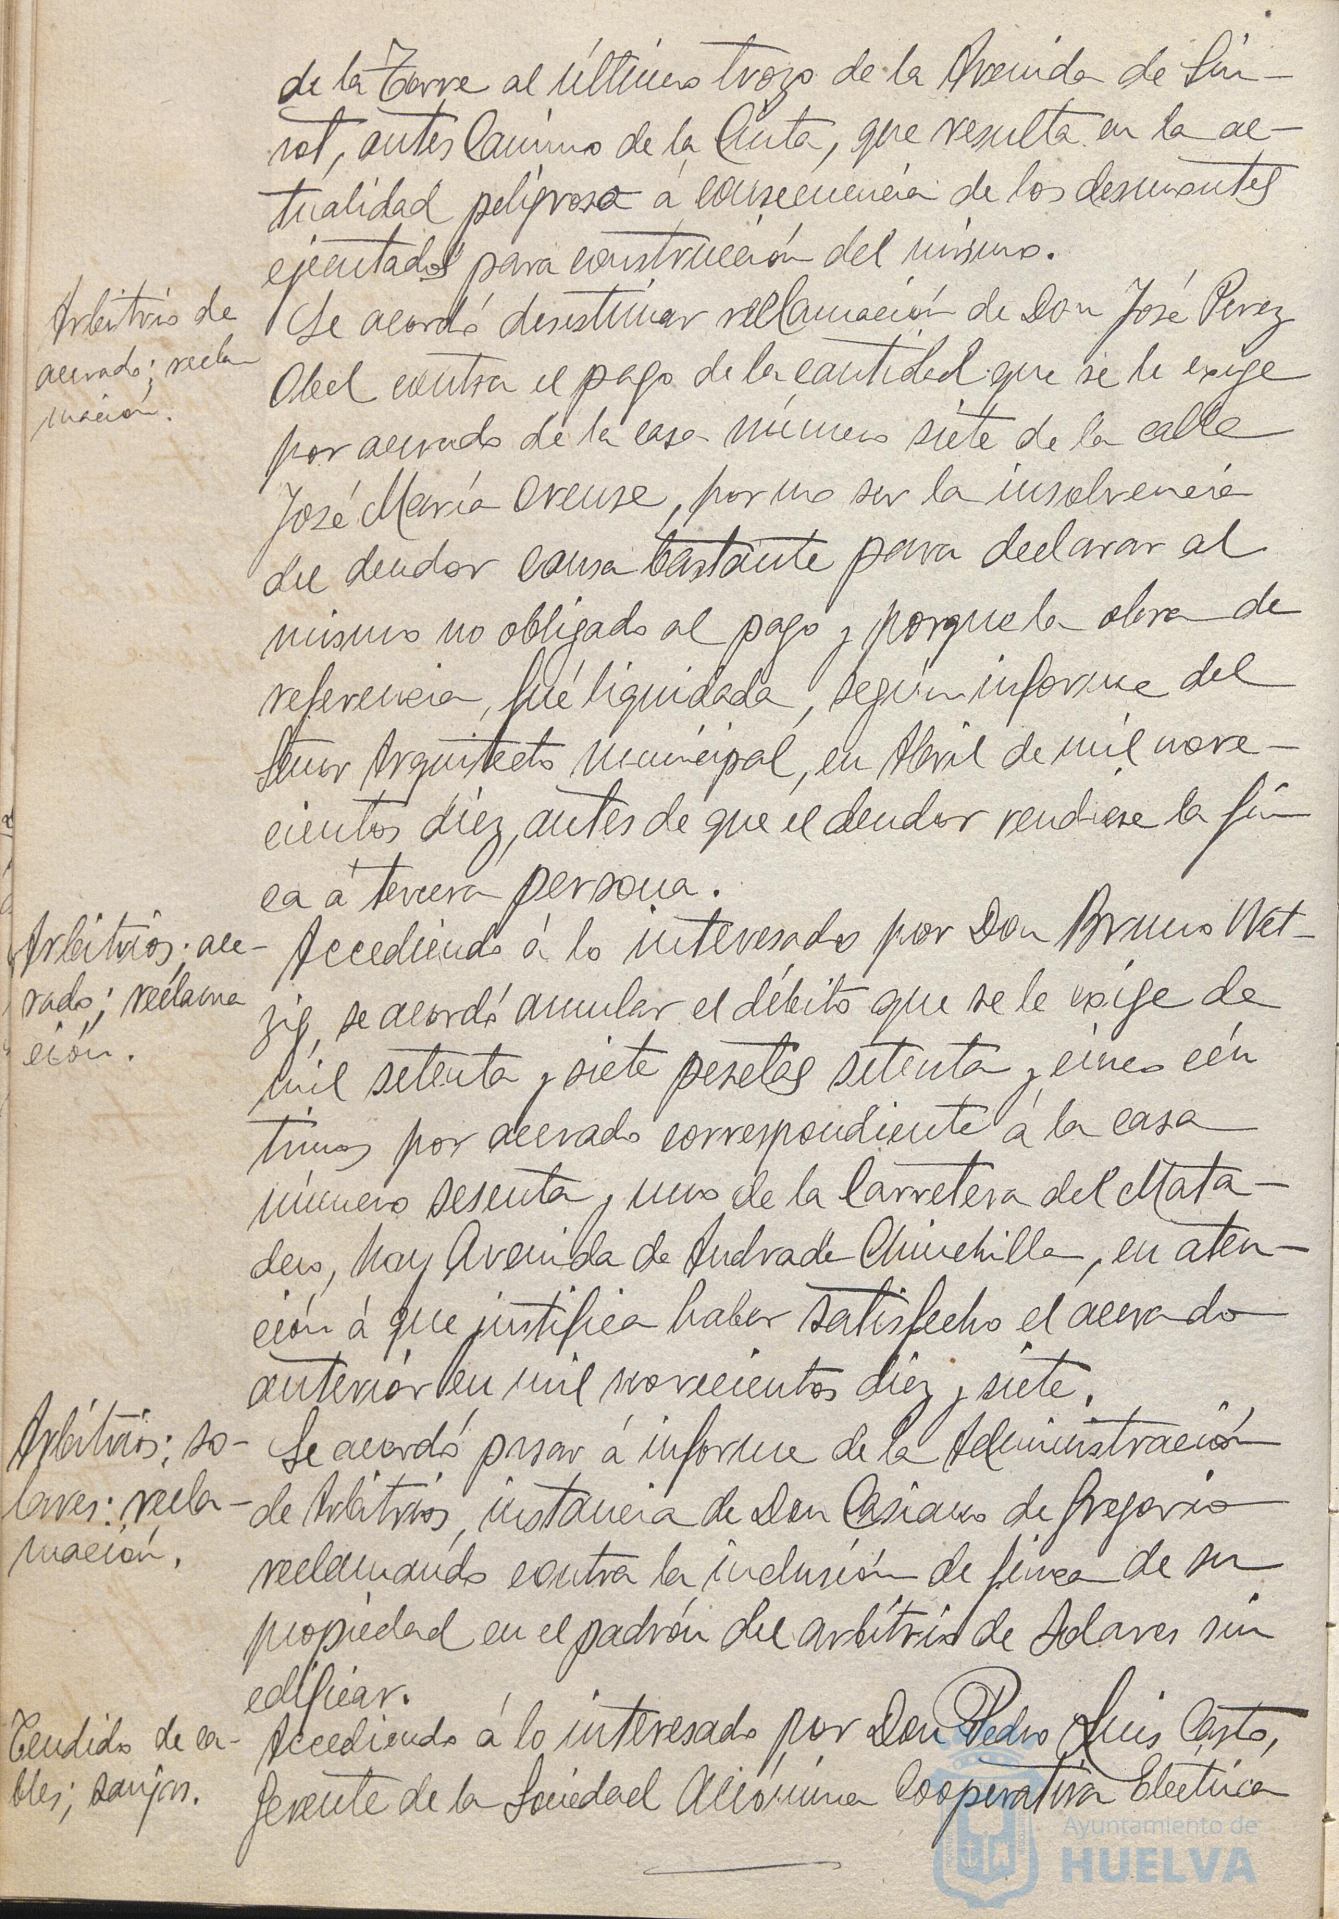 de la Torre al último trozo de la Avenida de Sin-
rot, antes Camino de la Cinta, que resulta en la ac-
tualidad peligrosa á consecuencia de los desmontes
ejecutados para construcción del mismo.
Arbitrio de
acerado; recla
mación.
Se acordó desestimar reclamación de Don José Perez
Abel contra el pago de la cantidad que se le exige
por acerado de la casa número siete de la calle
José María Orense, por no ser la insolvencia
del deudor causa bastante para declarar al
mismo no obligado al pago y porque la obra de
referencia, fué liquidada, según informe del
Señor Arquitecto Municipal, en Abril de mil nove-
cientos diez, antes de que el deudor vendiese la fin
ca á tercera persona.
Arbitrios; ace-
rado; reclama
ción.
Accediendo á lo interesado por Don Bruno Wet-
zig, se acordó anular el débito que se le exige de
mil setenta y siete pesetas setenta y cinco cén
timos por acerado correspondiente á la casa
número sesenta y uno de la Carretera del Mata-
dero, hoy Avenida de Andrade Chinchilla, en aten-
ción á que justifica haber satisfecho el acerado
anterior en mil novecientos diez y siete.
Arbitrios; so-
lares; recla-
mación.
Se acordó pasar á informe de la Administración
de Arbitrios, instancia de Don Casiano de Gregorio
reclamando contra la inclusión de finca de su
propiedad en el padrón del arbitrio de Solares sin
edificar.
Tendido de ca-
bles; zanjas.
Accediendo á lo interesado por Don Pedro Luis Casto,
Gerente de la Sociedad Anónima Cooperativa Electrica
Ayuntamiento de
HUELVA